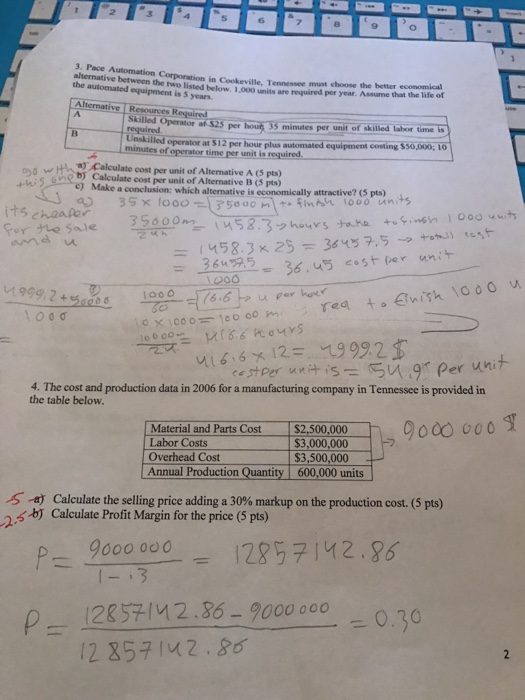 3. Pace Automation Corporation in Cookeville, Tennessee must choose the better economical
alternative between the two listed below. 1,000 units are required per year. Assume that the life of
the automated equipment is 5 years.
Alternative Resources Required
A Skilled Operator at $25 per hour, 35 minutes per unit of skilled labor time is
required.
B Unskilled operator at $12 per hour plus automated equipment costing $50,000; 10
minutes of operator time per unit is required.
a) Calculate cost per unit of Alternative A (5 pts)
b) Calculate cost per unit of Alternative B (5 pts)
c) Make a conclusion: which alternative is economically attractive? (5 pts)
go with
this one
its cheaper
for the sale
and u
a) 35 x 1000 = 35000 m to finish 1000 units
35000m / 24h = 1458.3 → hours take to finish 1000 units
= 1458.3 x 25 = 36457.5 → total cost
= 36457.5 / 1000 = 36.45 cost per unit
B)
4999.2 + 50000 / 1000 =
1000 / 60 = 16.6 → u per hour
10 x 1000 = 10000 m req to finish 1000 u
10000 / 24 = 416.6 hours
416.6 x 12 = 4999.2 $
cost per unit is = 54.9 $ per unit
4. The cost and production data in 2006 for a manufacturing company in Tennessee is provided in
the table below.
Material and Parts Cost $2,500,000
Labor Costs $3,000,000
Overhead Cost $3,500,000
Annual Production Quantity 600,000 units
→ 9000 000 $
-5 a) Calculate the selling price adding a 30% markup on the production cost. (5 pts)
-2.5 b) Calculate Profit Margin for the price (5 pts)
P = 9000 000 / 1 - .3 = 12857142.86
P = 12857142.86 - 9000 000 / 12857142.86 = 0.30
2